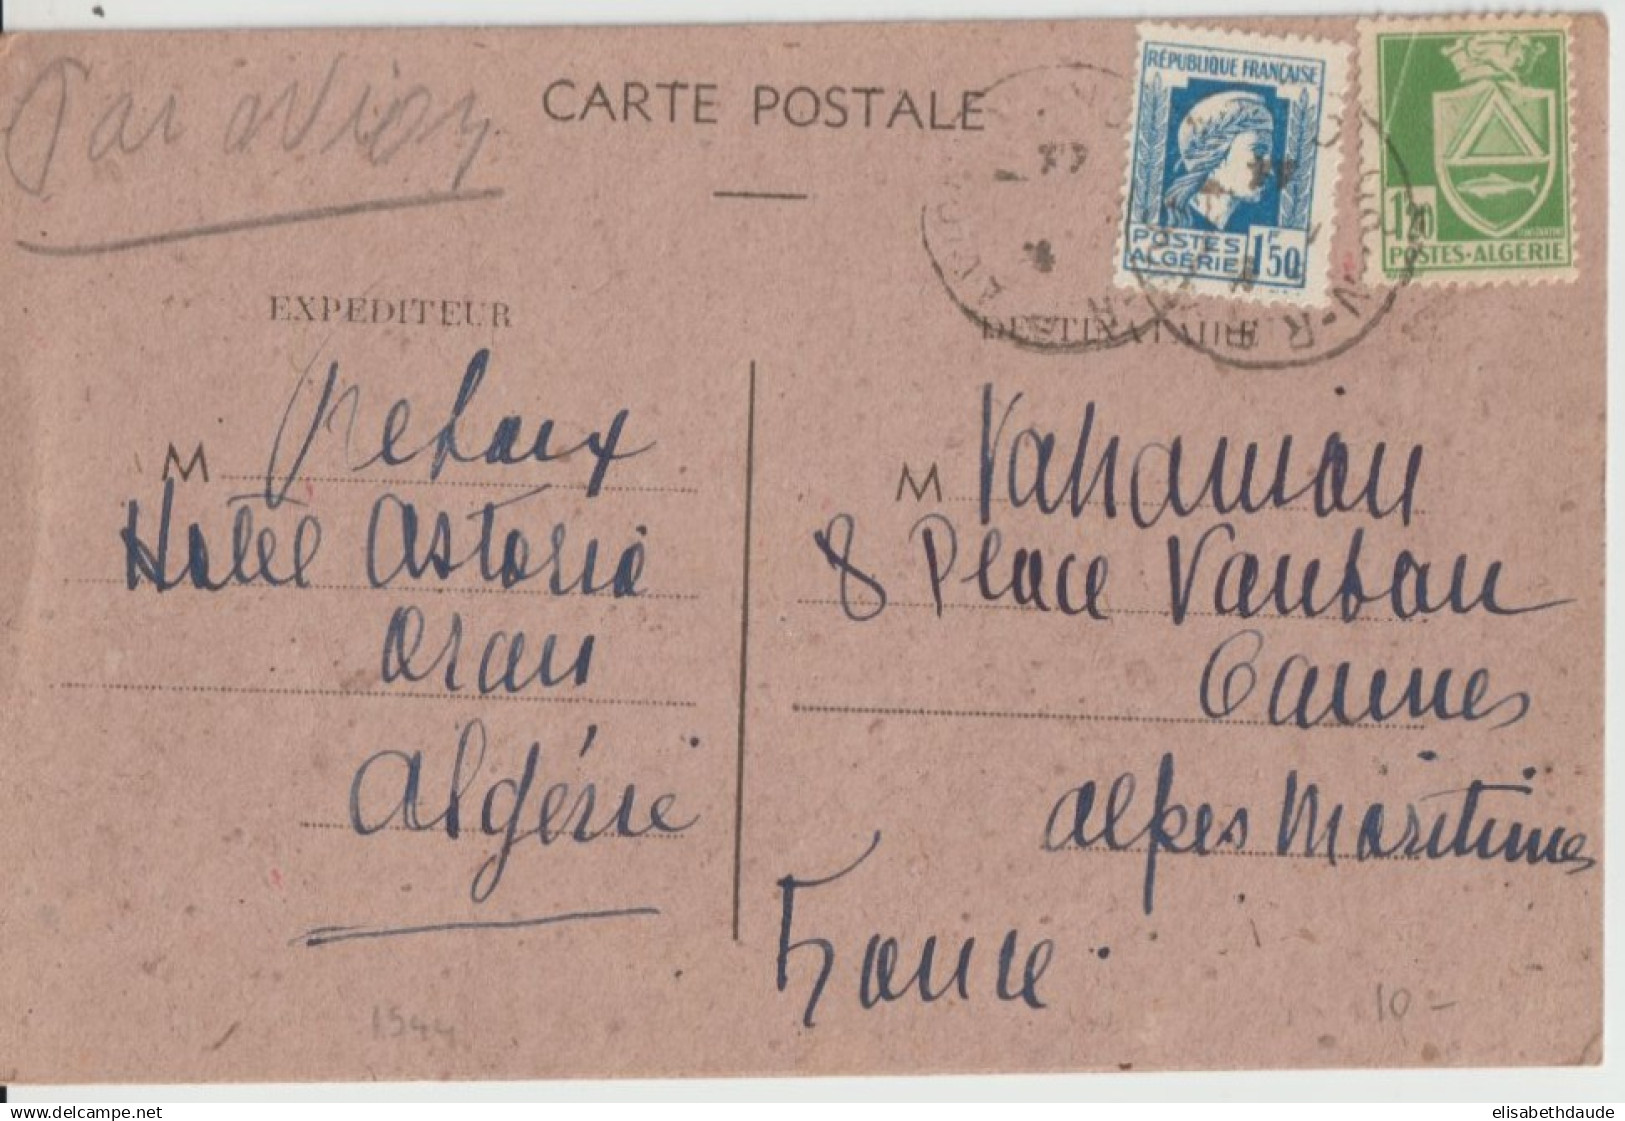 Par avion
CARTE POSTALE
REPUBLIQUE FRANÇAISE
POSTES
ALGERIE
1F50
1,20
POSTES-ALGERIE
EXPEDITEUR
M
Hotel Astoria
Oran
Algérie
DESTINATAIRE
M Vahamion
8 Place Vauban
Cannes
Alpes Maritimes
France.
1944
10-
elisabethdaude.com
elisabethdaude